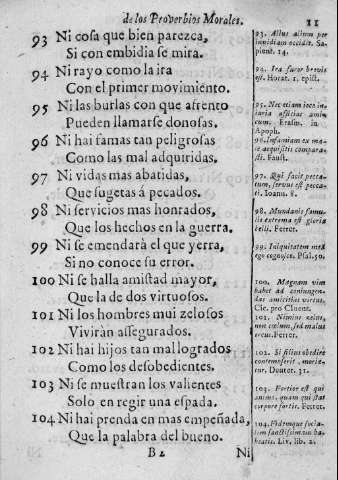 de los Proverbios Morales. 11
93 Ni cosa que bien parezca,
Si con embidia se mira.
94 Ni rayo como la ira
Con el primer movimiento.
95 Ni las burlas con que afrento
Pueden llamarse donosas.
96 Ni hai famas tan peligrosas
Como las mal adquridas.
97 Ni vidas mas abatidas,
Que sugetas á pecados.
98 Ni servicios mas honrados,
Que los hechos en la guerra.
99 Ni se emendarà el que yerra,
Si no conoce su error.
100 Ni se halla amistad mayor,
Que la de dos virtuosos.
101 Ni los hombres mui zelosos
Viviràn assegurados.
102 Ni hai hijos tan mal logrados
Como los desobedientes.
103 Ni se muestran los valientes
Solo en regir una espada.
104 Ni hai prenda en mas empeñada,
Que la palabra del bueno.
B2 Ni
93. Alius alium per
invidiam occidit. Sa-
pient. 14.
94. Ira furor brevis
est. Horat. 1. epist.
95. Nec etiam ioco
Erasm. in
Apoph.
96. Infamiam ex ma-
le acquisitis compara-
sti. Faust.
97. Qui facit pecca-
tum, servus est pecca-
ti. Ioann. 8.
98.
extrema est gloria
belli. Ferrer.
99. Iniquitatem meã
ego cognosco. Psal. 50.
100. Magnam vim
habet ad coniungen-
das amicitias virtus,
Cic. pro Cluent.
101. Nimius zelus,
non zelum, sed malus
Ferrer.
102. Si filius obedire
contempserit, morie-
tur. Deuter. 31.
103. Fortior est qui
animo, quam qui stat
corpore fortis. Ferrer.
104. Fidemque socia-
lem sanctissimam
Liv. lib. 2.